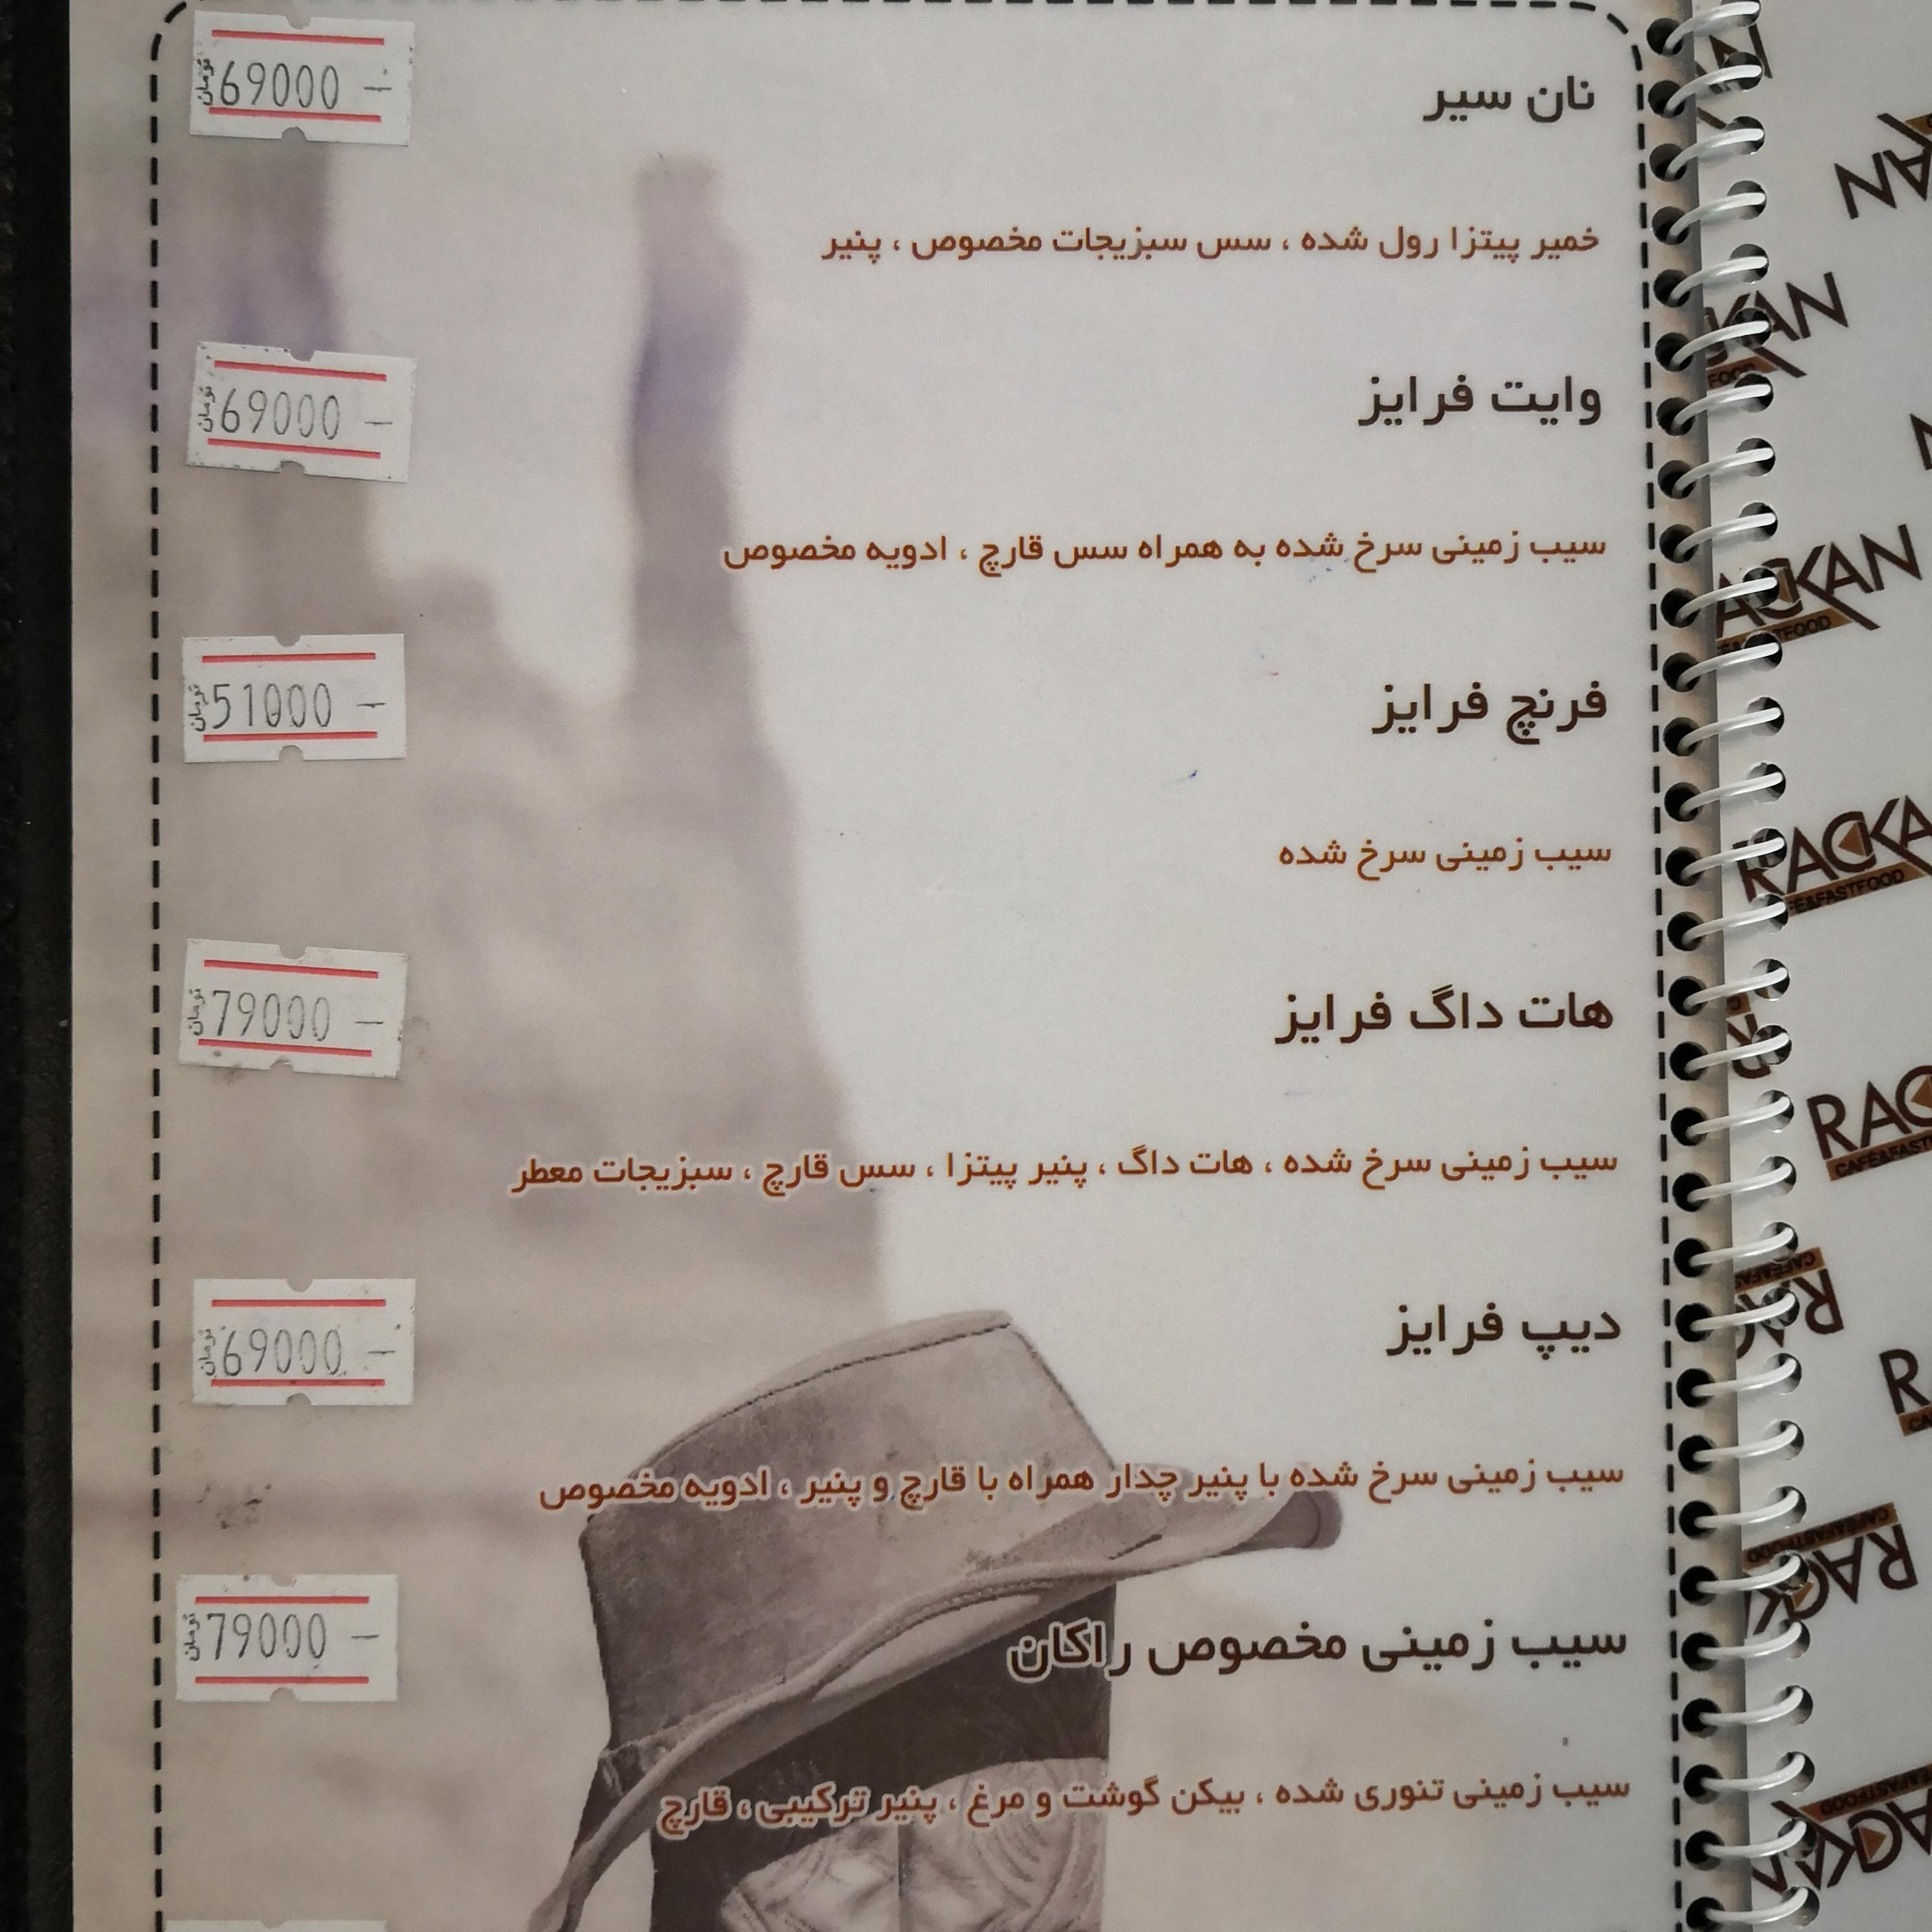 نان سیر
69000 – تومان
خمیر پیتزا رول شده ، سس سبزیجات مخصوص ، پنیر
وایت فرایز
69000 – تومان
سیب زمینی سرخ شده به همراه سس قارچ ، ادویه مخصوص
فرنچ فرایز
51000 – تومان
سیب زمینی سرخ شده
هات داگ فرایز
79000 – تومان
سیب زمینی سرخ شده ، هات داگ ، پنیر پیتزا ، سس قارچ ، سبزیجات معطر
دیپ فرایز
69000 – تومان
سیب زمینی سرخ شده با پنیر چدار همراه با قارچ و پنیر ، ادویه مخصوص
سیب زمینی مخصوص راکان
79000 – تومان
سیب زمینی تنوری شده ، بیکن گوشت و مرغ ، پنیر ترکیبی ، قارچ